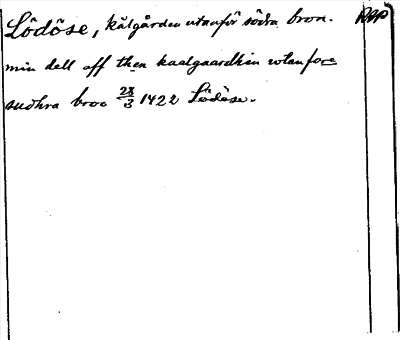 Lödöse, kålgården utanför södra bron. RAP
min dell aff then kaalgaardhin wtanfore
sudhra broo 28/3 1422 Lödöse.